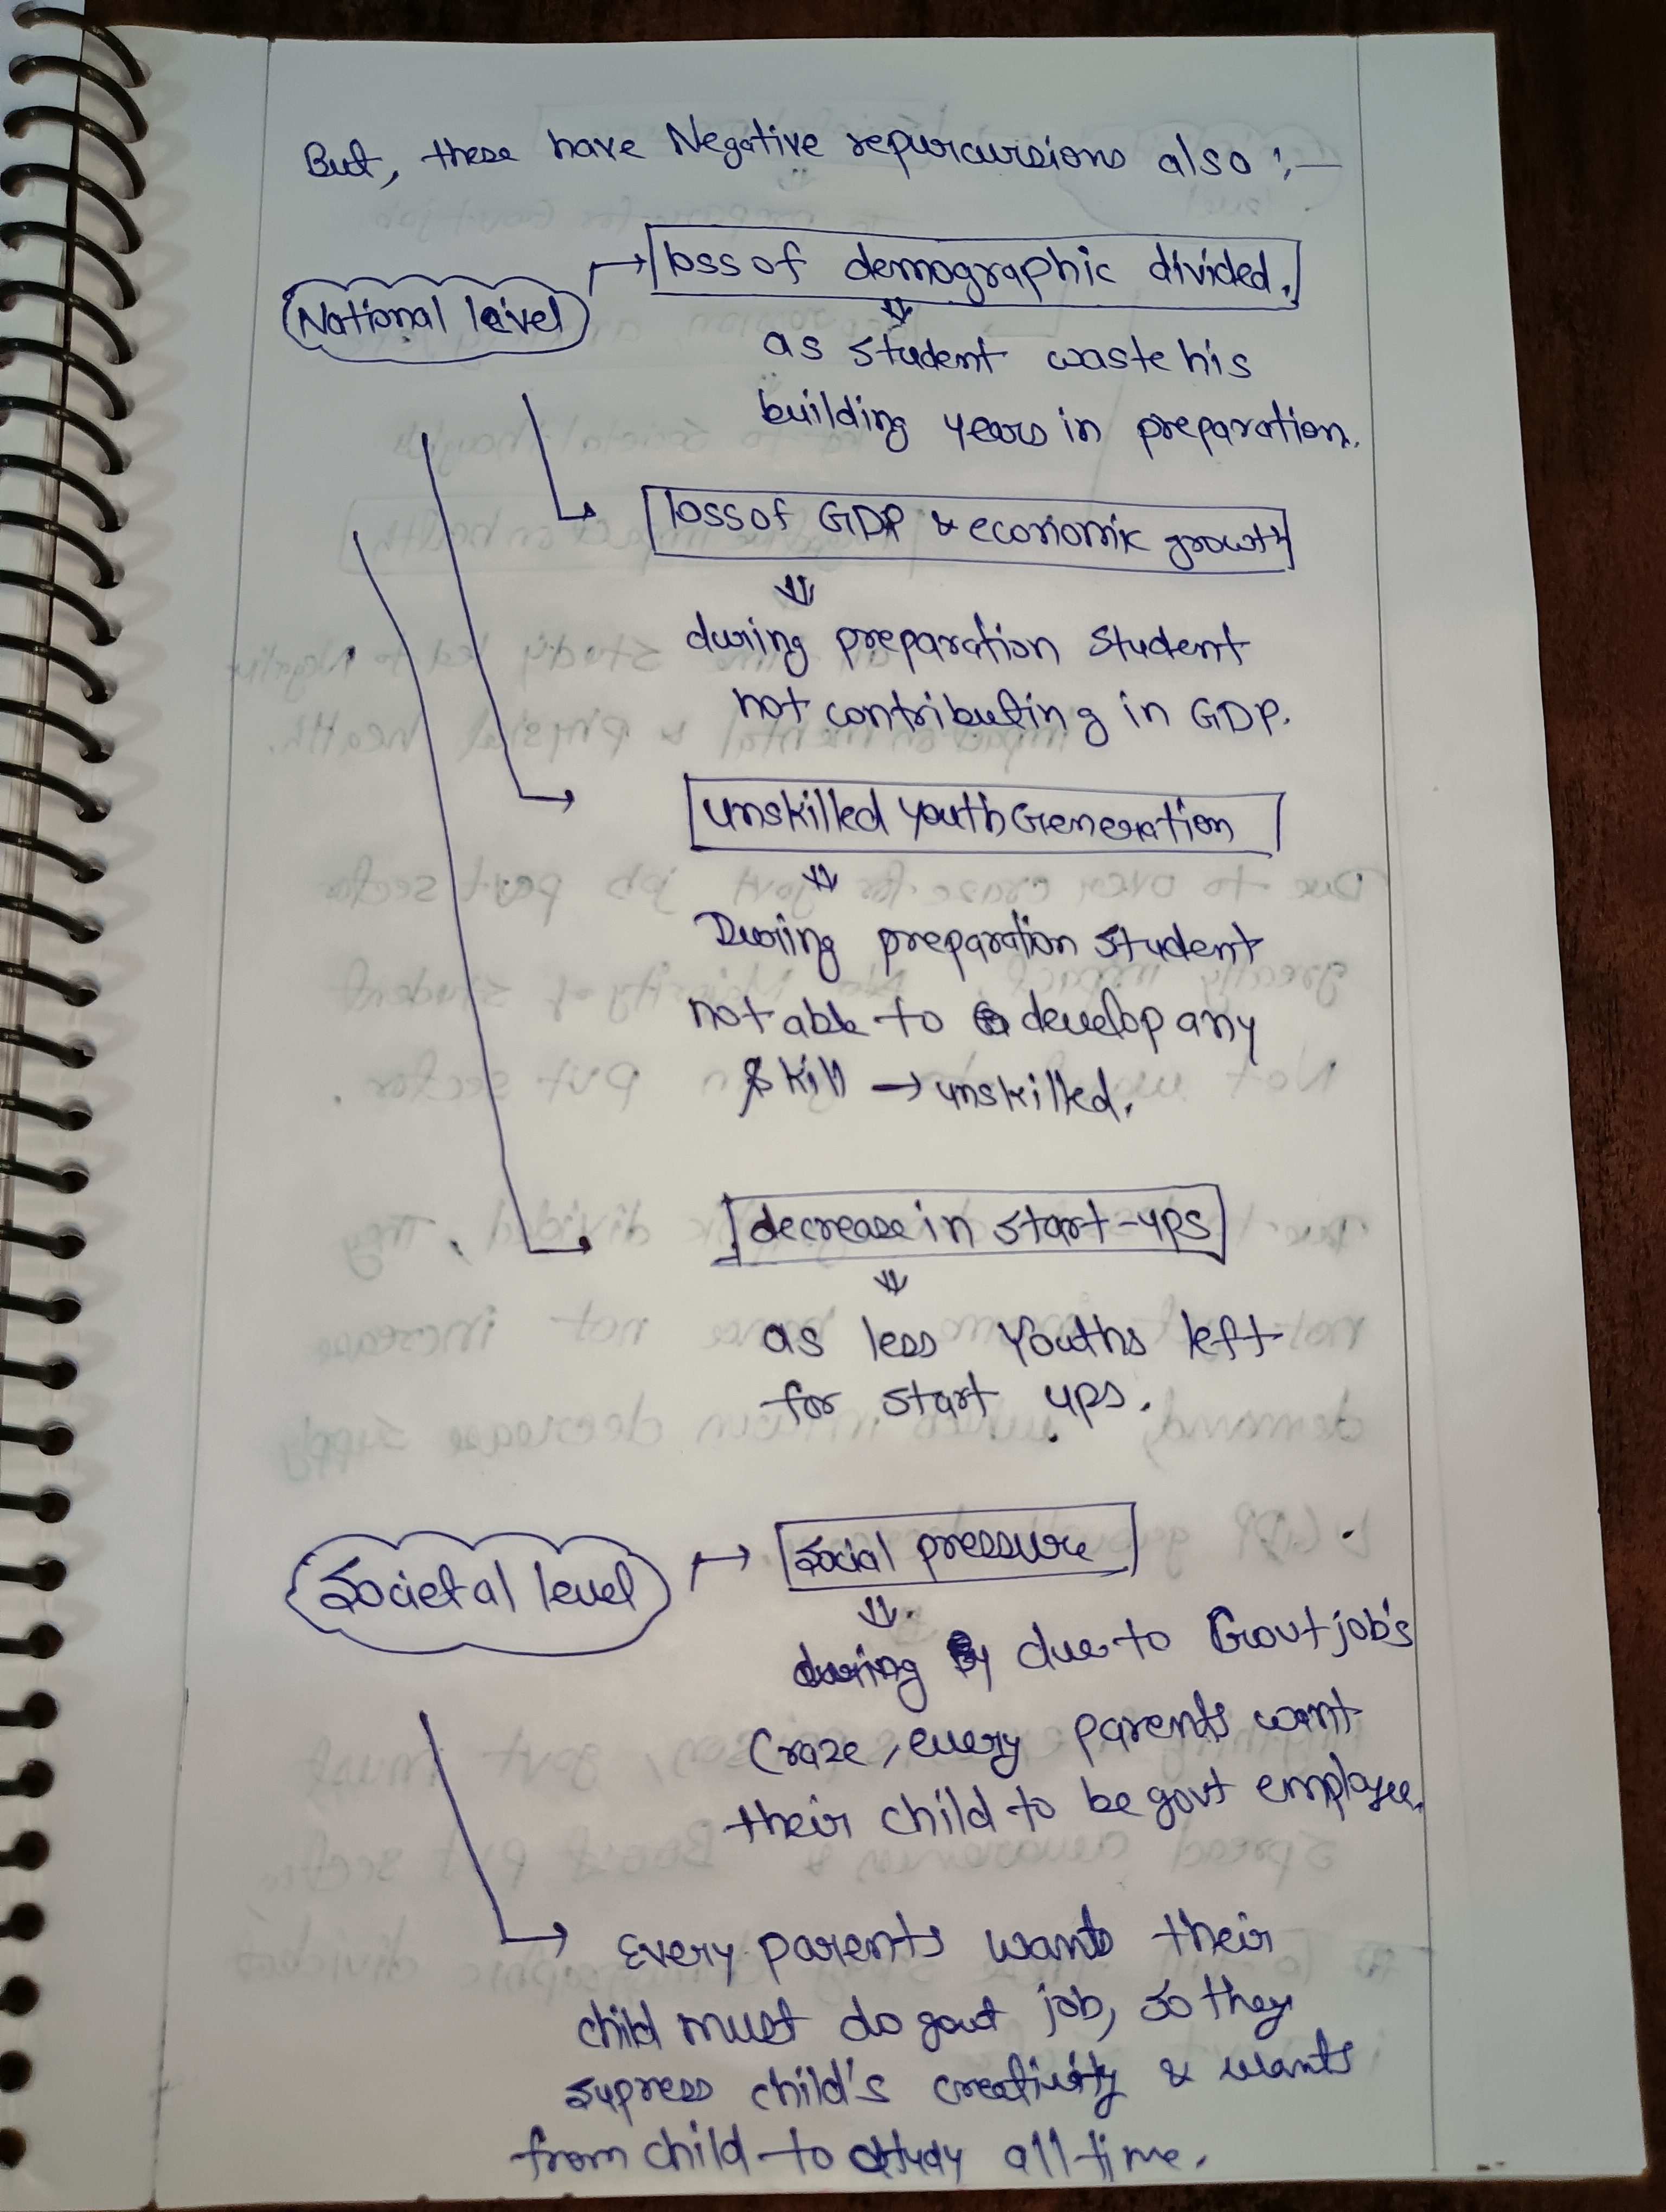 But, these have Negative repurcursions also :-
National level → loss of demographic divided.
as student waste his
building years in preparation.
loss of GDP & economic growth
during preparation student
not contributing in GDP.
unskilled youth Generation
During preparation student
not able to develop any
skill → unskilled.
decrease in start-ups
as less Youths left
for start ups.
Societal level → Social pressure
during due to Govt job's
Craze, every parents want
their child to be govt employee.
→ Every parents wants their
child must do govt job, so they
supress child's creativity & wants
from child to study all time.